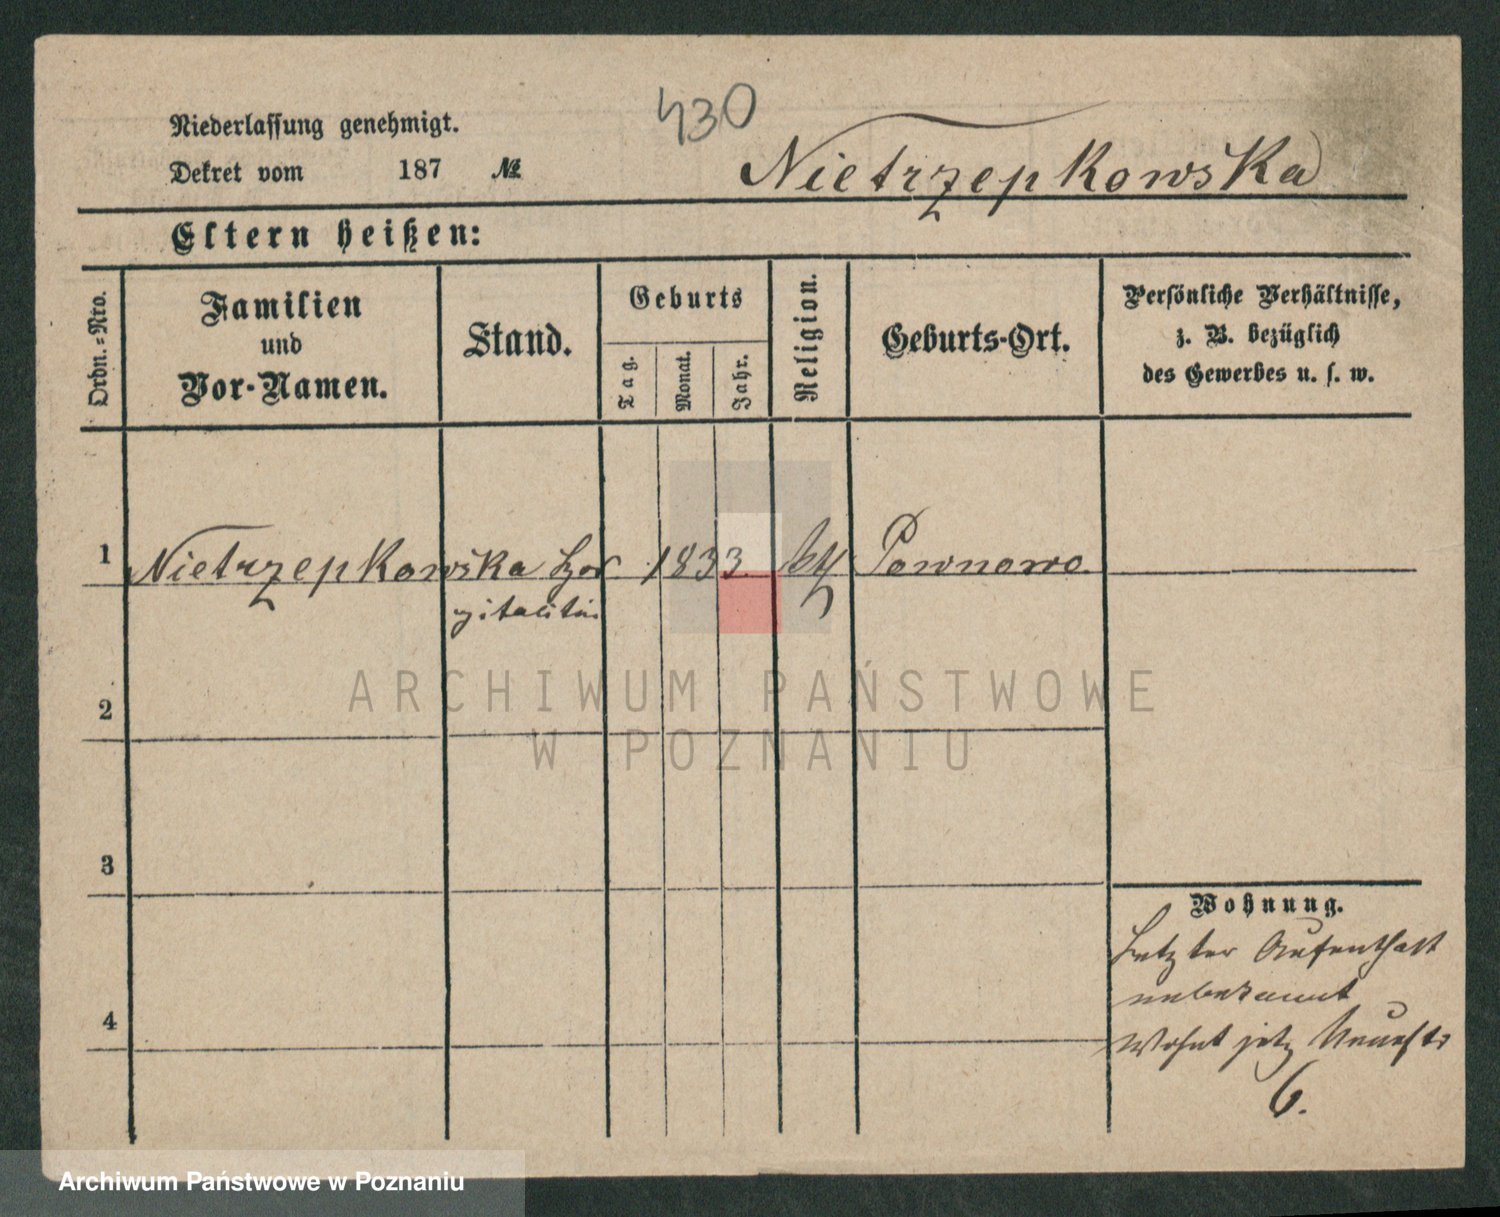 430
Niederlassung genehmigt.
Dekret vom 187 №
Nietrzepkowska
Eltern heißen:
Ordn.-Nro.
Familien
und
Vor-Namen.
Stand.
Geburts
Tag.
Monat.
Jahr.
Religion.
Geburts-Ort.
Persönliche Verhältnisse,
z. B. bezüglich
des Gewerbes u. s. w.
1 Nietrzepkowska Hos 1833. Pownowo.
pitalitin
2
3
4
Wohnung.
Letzter Aufenthalt
unbekannt
Wohnt jetz Neuestr
6.
ARCHIWUM PAŃSTWOWE
W POZNANIU
Archiwum Państwowe w Poznaniu